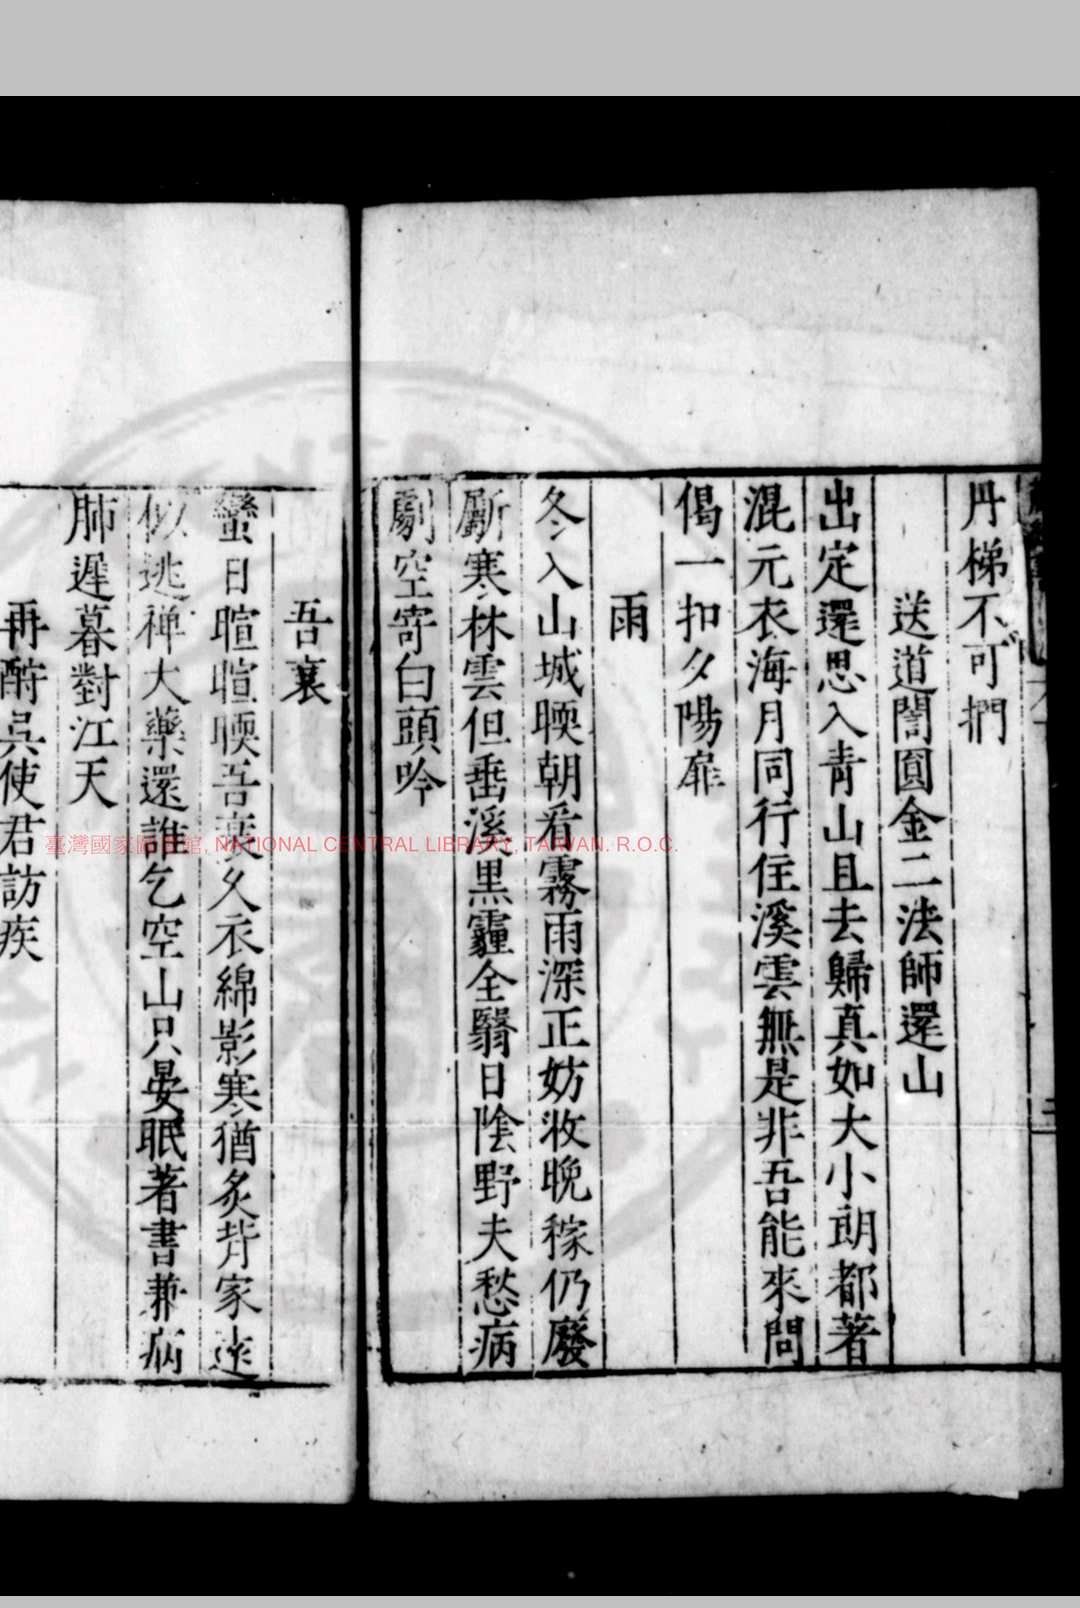 丹梯不可捫
送道闇圓金二法師還山
出定還思入青山且去歸真如大小朗都著
混元衣海月同行住溪雲無是非吾能來問
偈一扣夕陽扉
雨
冬入山城暝朝看霧雨深正妨收晚稼仍廢
斸寒林雲但垂溪黑霾全翳日陰野夫愁病
劇空寄白頭吟
吾衰
蠻日暄暄暝吾衰久衣綿影寒猶炙背家遠
似逃禅大藥還誰乞空山只晏眠著書兼病
肺遲暮對江天
再酧吳使君訪疾
臺灣國家圖書館, NATIONAL CENTRAL LIBRARY, TAIWAN. R.O.C.